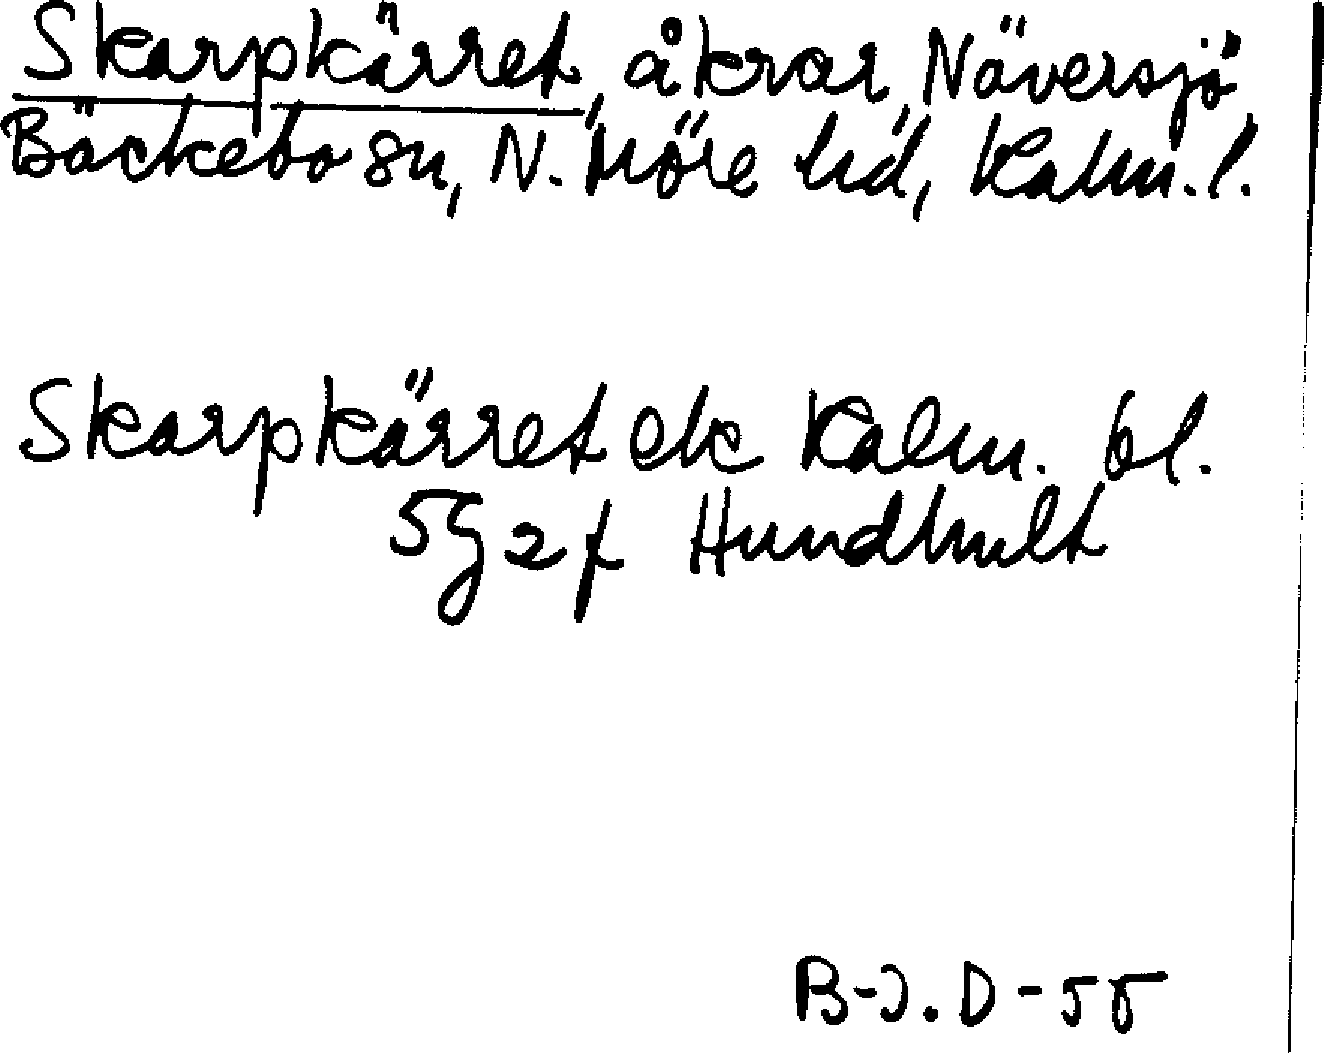 Skarpkärret, åkrar, Näversjö
Bäckebo sn, N. Möre hd, Kalm. l.
Skarpkärret ek Kalm. bl.
5g 2f Hundhult
B-J. D-55